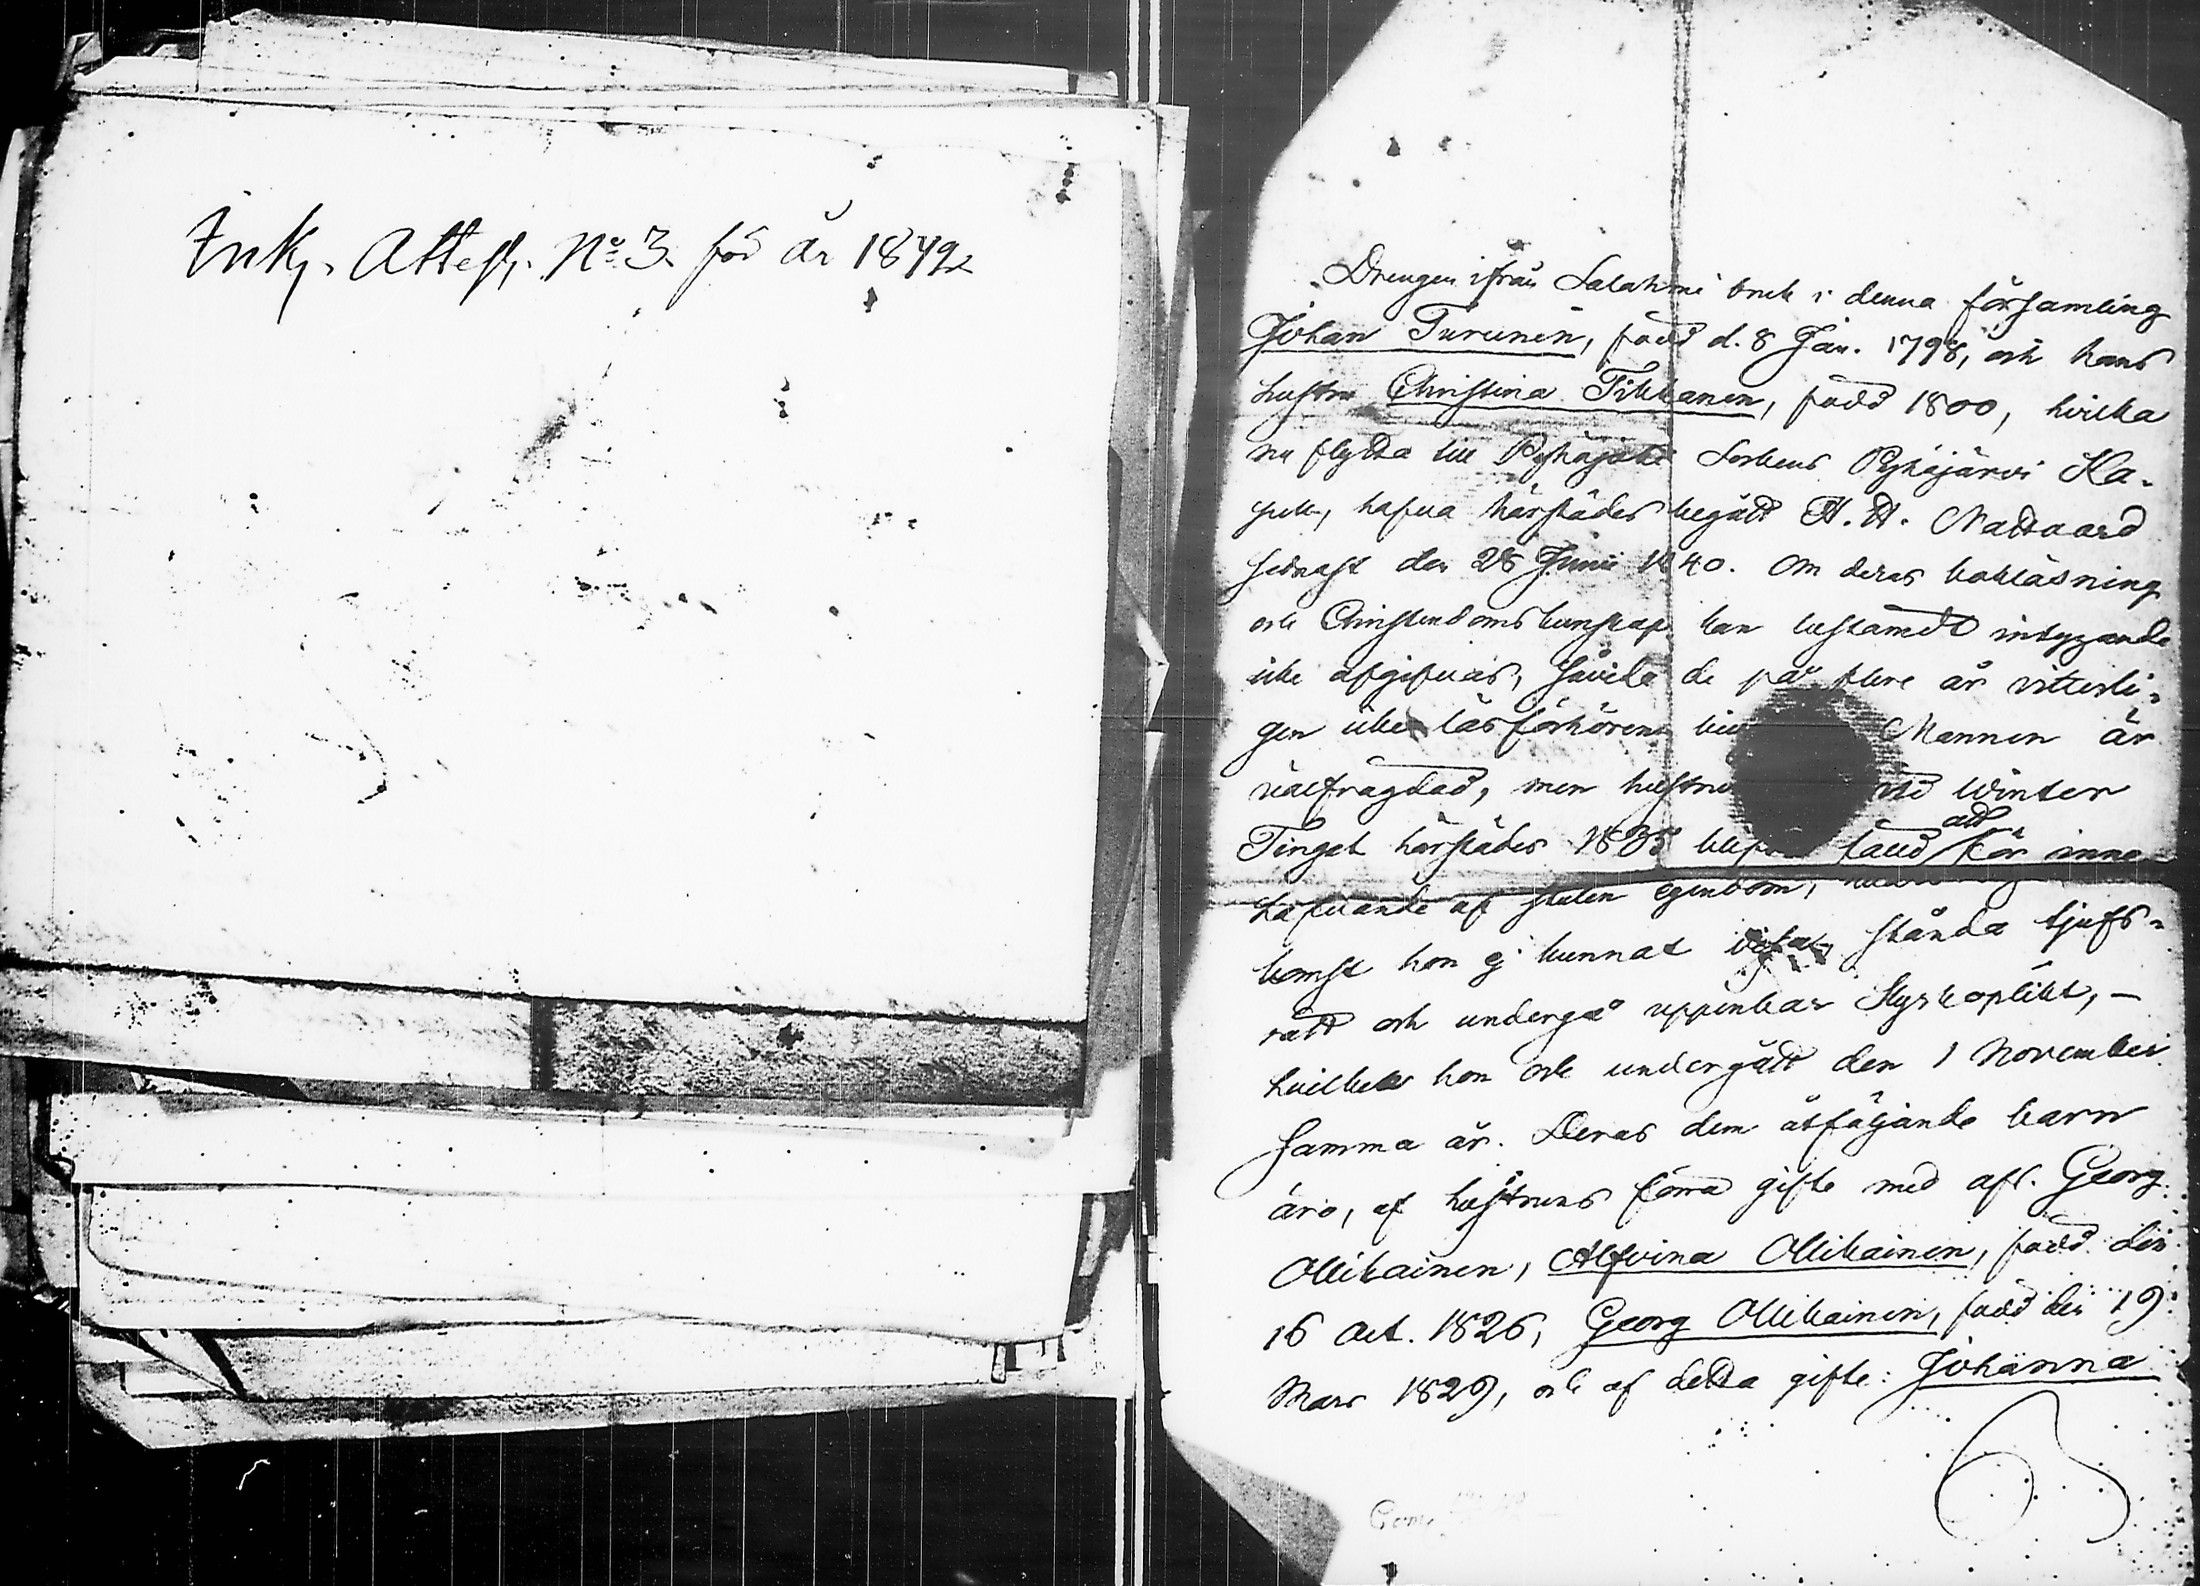 Ink. Attest. No 3. för år 1842
Drengen ifrån Salahmi bruk i denna församling
Johan Turunen, född d. 8 Jan. 1798, och hans
hustru Christina Tikkanen, född 1800, hvilka
nu flytta till Pyhäjoki Sockens Pyhäjärvi Ka-
pell, hafva härstädes begått H. H. Nattvard
sednast den 28 Junii 1840. Om deras bokläsning
och Christendoms kunskap kan bestämdt intygande
icke afgifvas, såvida de på flere år vitterli-
gen icke läsförhören Mannen är
välfrägdad, men hustru Winter
Tinget härstädes 1835 fälld att för inne-
hafvande af stulen egendom,
komst hon ej kunnat visa, stånda tjufs-
rätt och undergå uppenbar Kyrkoplikt, –
hvilket hon ock undergått den 1 November
samma år. Deras dem åtföljande barn
äro, af hustruns förra gifte med afl. Georg
Ollikainen, Alfvina Ollikainen, född den
16 Oct. 1826, Georg Ollikainen, född den 19
Mars 1829, och af detta gifte: Johanna